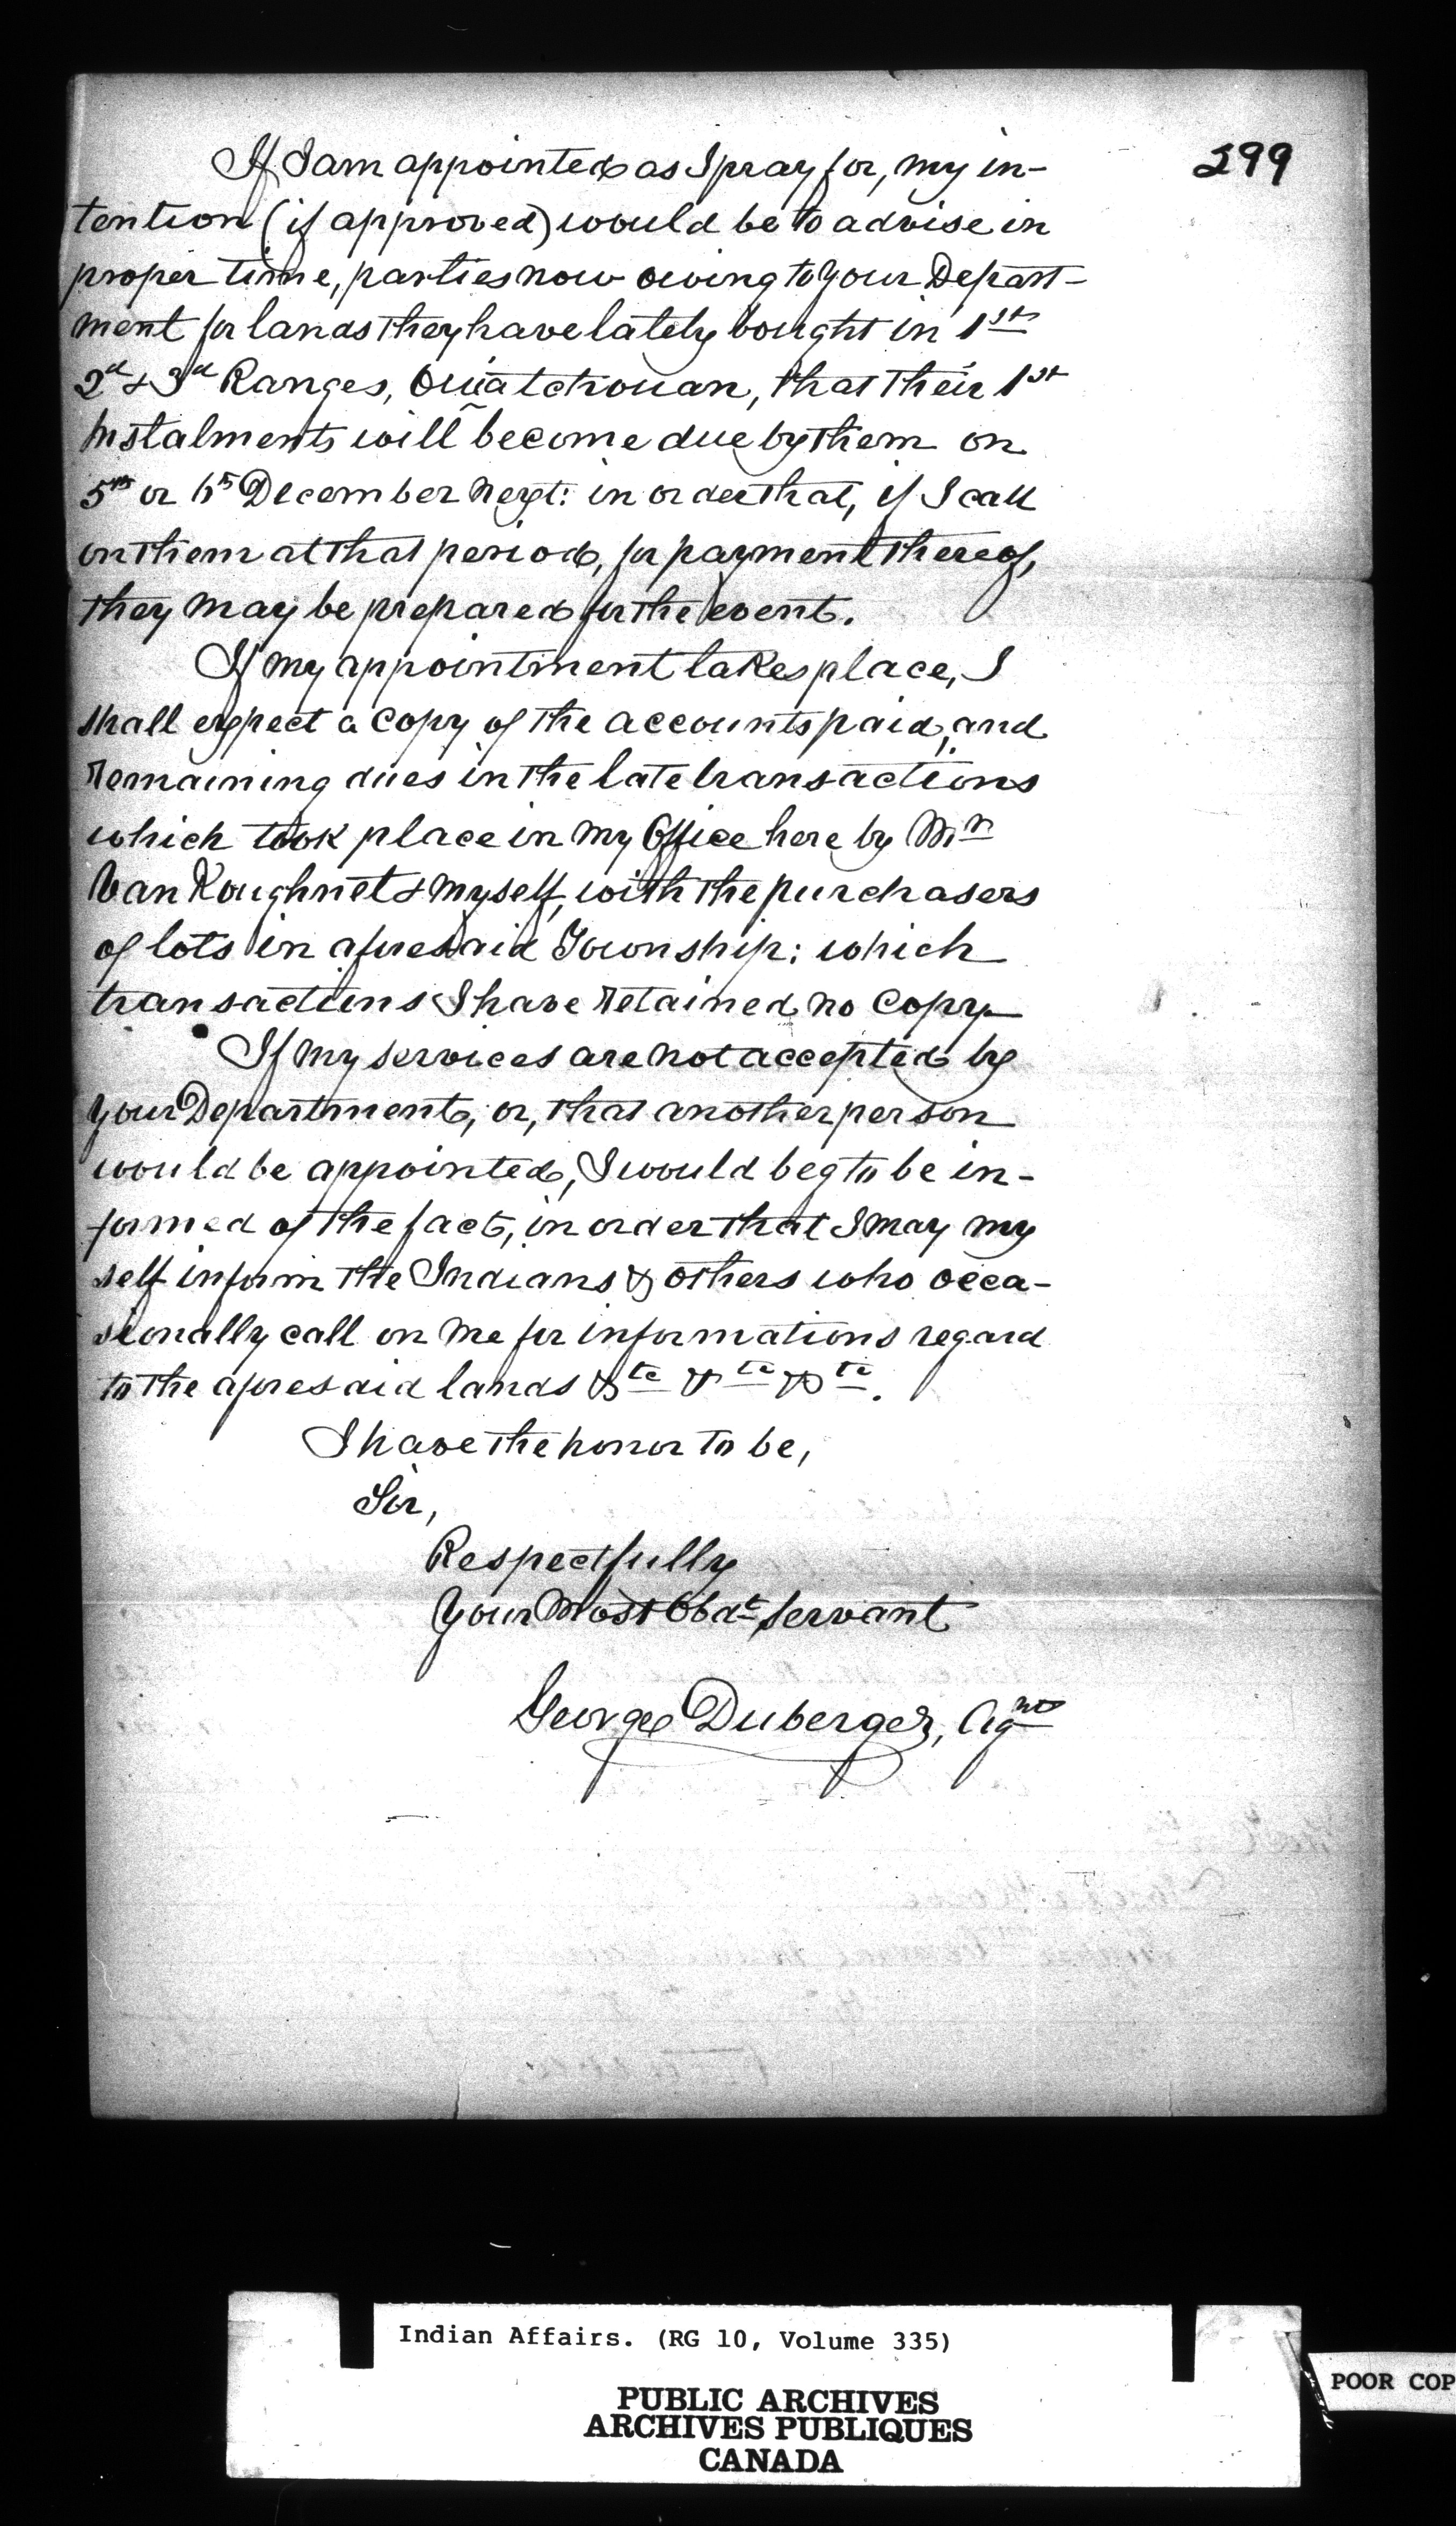 299
If I am appointed as I pray for, my in-
tention (if approved) would be to advise in
proper time, parties now owing to your Depart-
ment for lands they have lately bought in 1st
2d & 3d Ranges, Ouiatchouan, that their 1st
Instalments will become due by them on
5th or 6th December next: in order that, if I call
on them at that period, for payment thereof,
they may be prepared for the event.
If my appointment takes place, I
shall expect a copy of the accounts paid, and
remaining dues in the late transactions
which took place in my Office here by Mr
Van Koughnet & myself, with the purchasers
of lots in aforesaid Township: which
transactions I have retained no copy
If my services are not accepted by
your Department, or, that another person
would be appointed, I would beg to be in-
formed of the fact, in order that I may my
self inform the Indians & others who occa-
sionally call on me for informations regard
to the aforesaid lands &tc &tc &tc.
I have the honor to be,
Sir,
Respectfully
Your Most Obdt Servant
George Duberger, Agnt
Indian Affairs. (RG 10, Volume 335)
PUBLIC ARCHIVES
ARCHIVES PUBLIQUES
CANADA
POOR COP